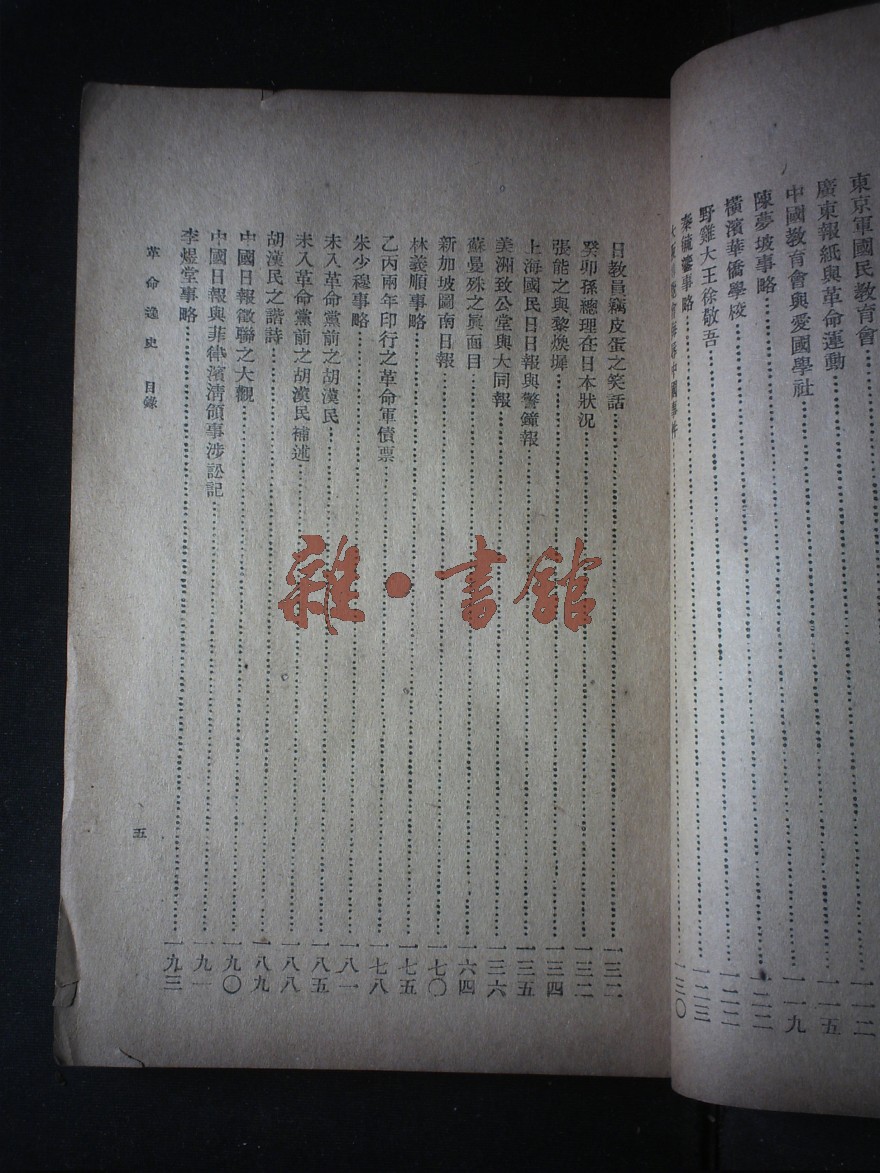 東京軍國民教育會……一一二
廣東報紙與革命運動……一一五
中國教育會與愛國學社……一一九
陳夢坡事略……一二二
橫濱華僑學校……一二二
野雞大王徐敬吾……一二三
秦毓鎏事略……一三〇
日教員竊皮蛋之笑話……一三二
癸卯孫總理在日本狀況……一三二
張能之與黎煥墀……一三四
上海國民日日報與警鐘報……一三五
美洲致公堂與大同報……一三六
蘇曼殊之眞面目……一六四
新加坡圖南日報……一七〇
林義順事略……一七五
乙丙兩年印行之革命軍債票……一七八
朱少穆事略……一八一
未入革命黨前之胡漢民……一八五
未入革命黨前之胡漢民補述……一八八
胡漢民之諧詩……一八九
中國日報徵聯之大觀……一九〇
中國日報與菲律濱淸領事涉訟記……一九一
李煜堂事略……一九三
革命逸史 目錄
五
雜·書館